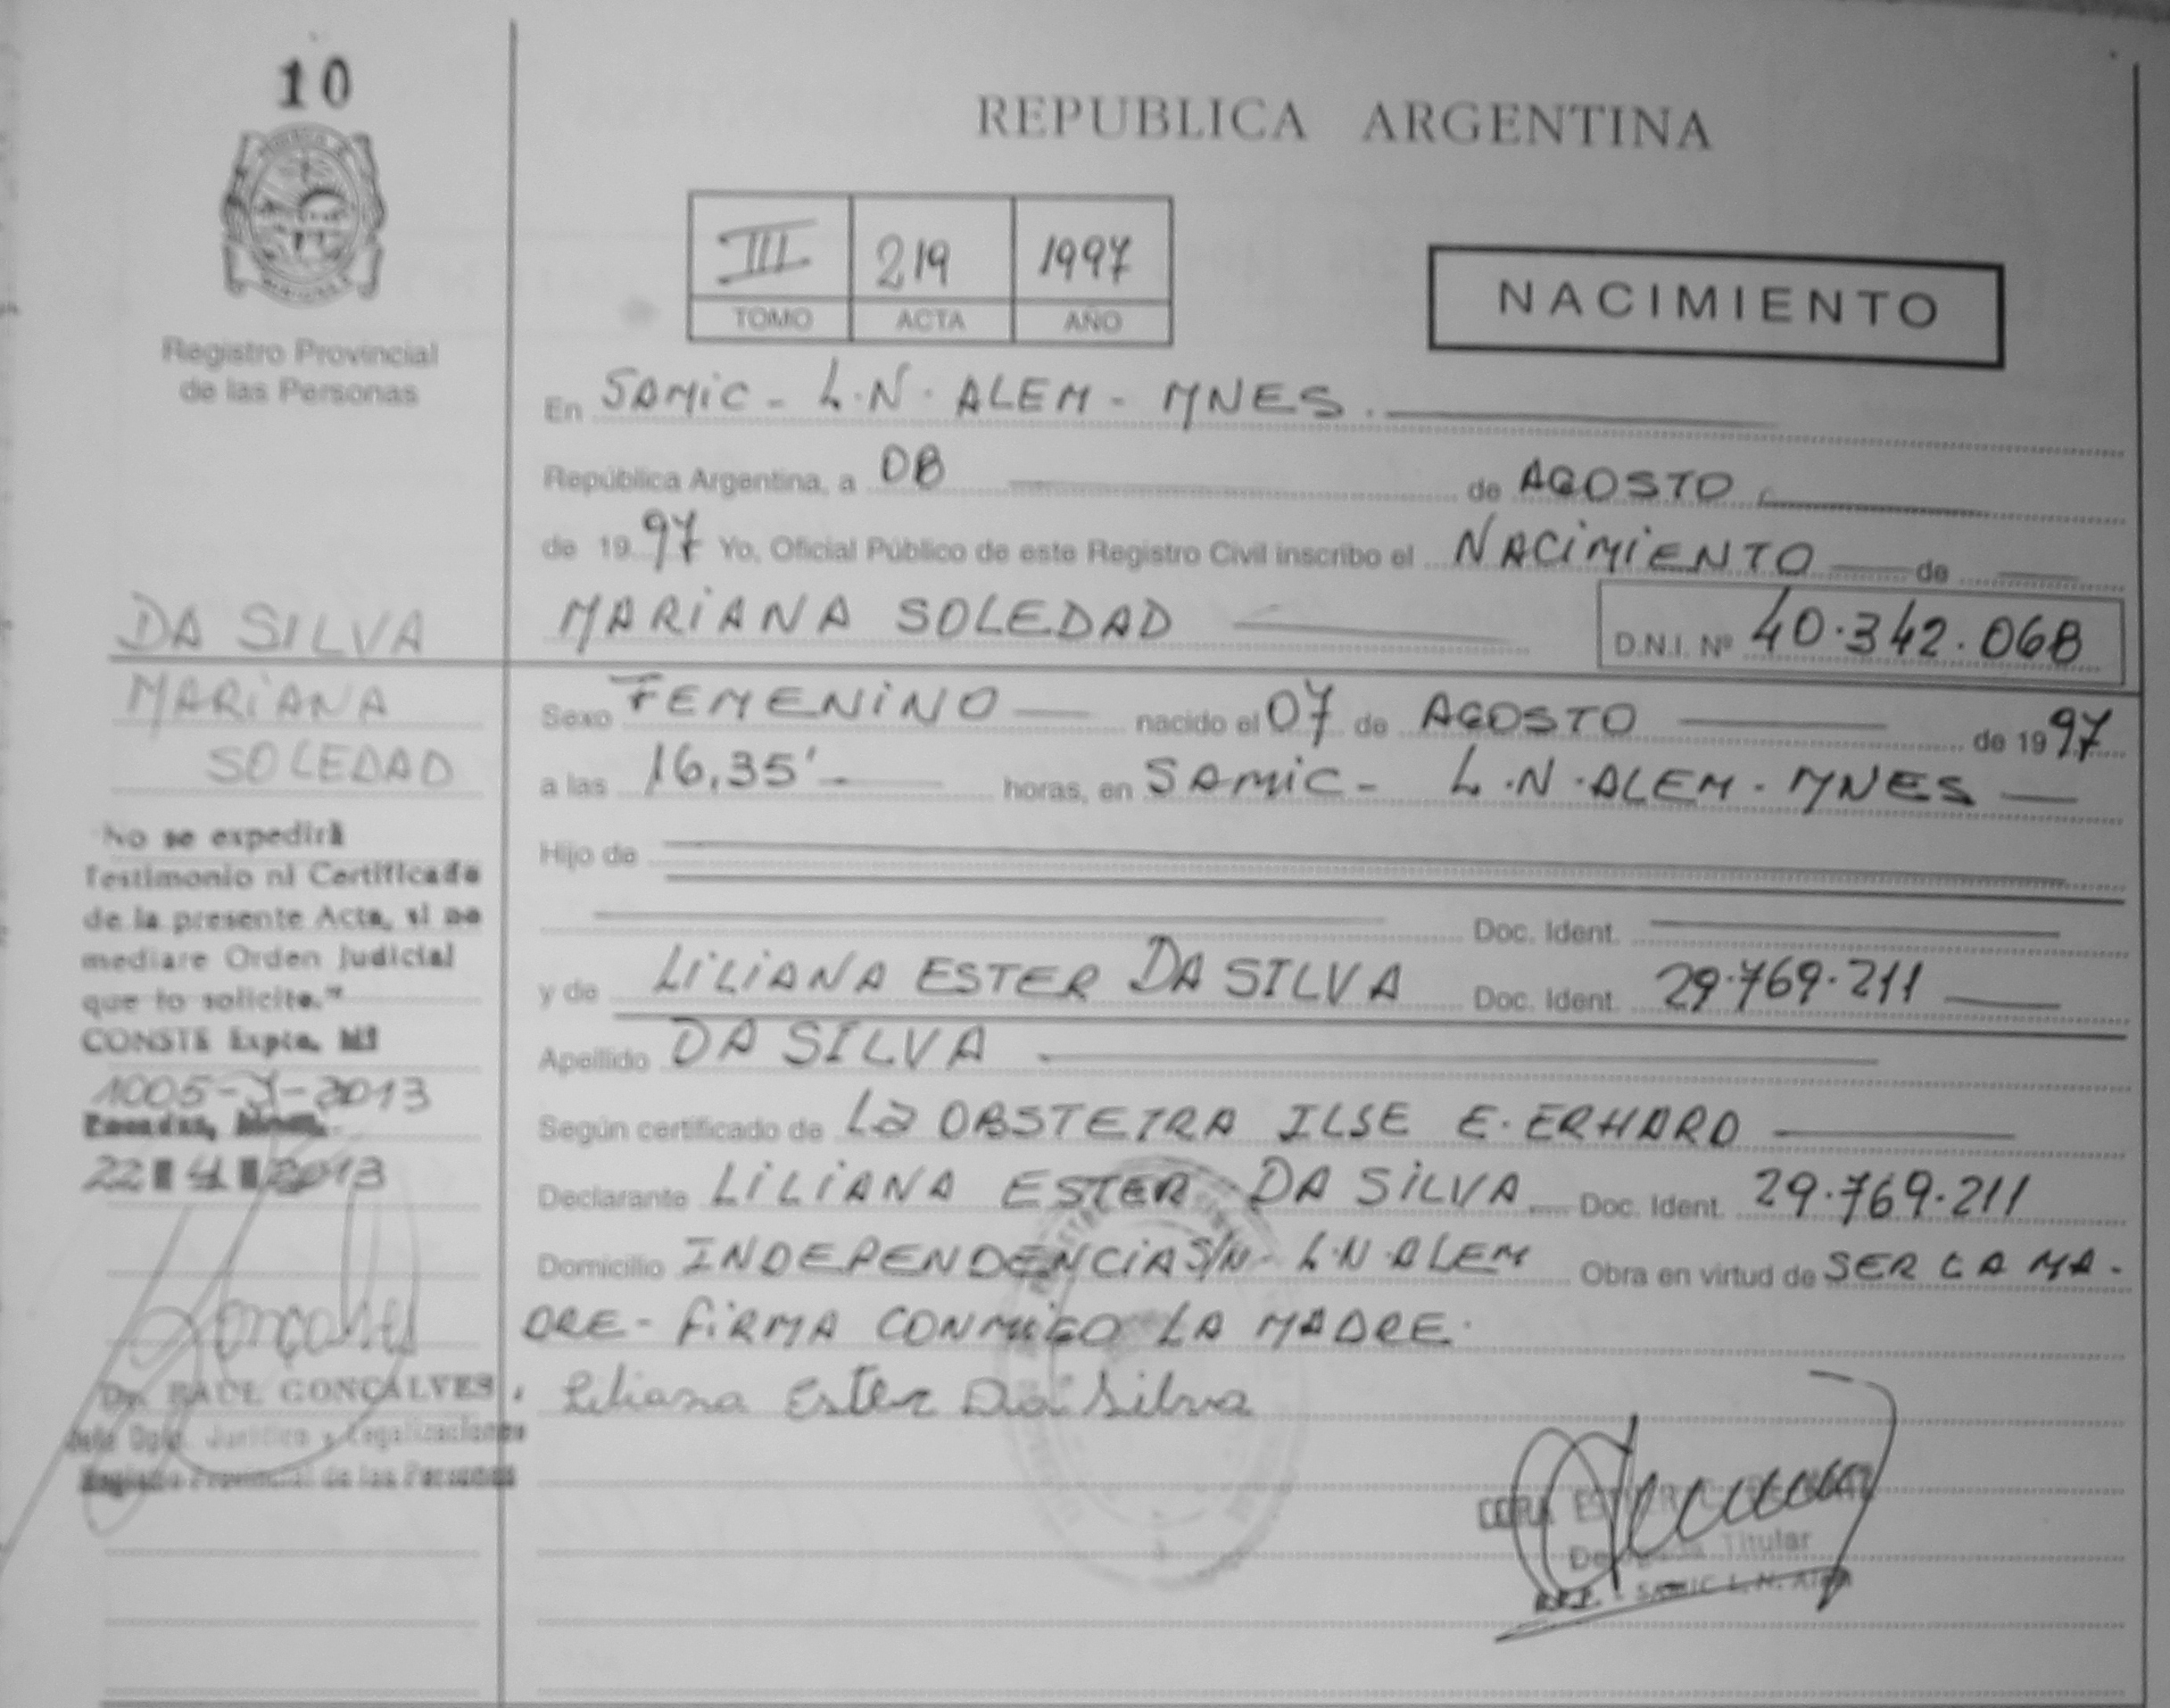 10
Registro Provincial
de las Personas
DA SILVA
MARIANA
SOLEDAD
"No se expedirá
Testimonio ni Certificado
de la presente Acta, si no
mediare Orden Judicial
que lo solicite."
CONSTE Expte. Nº
1005-Y-2013
Posadas, Mnes.
22 4 2013
Gonçalves
Dr. RAUL GONCALVES
Jefe Dpto. Jurídico y Legalizaciones
Registro Provincial de las Personas
REPUBLICA ARGENTINA
III 219 1997
TOMO ACTA AÑO
NACIMIENTO
En SAMIC - L.N. ALEM - MNES.
República Argentina, a 08 de AGOSTO
de 19 97 Yo, Oficial Público de este Registro Civil inscribo el NACIMIENTO de
MARIANA SOLEDAD D.N.I. Nº 40.342.068
Sexo FEMENINO nacido el 07 de AGOSTO de 19 97
a las 16,35' horas, en SAMIC - L.N. ALEM - MNES
Hijo de
Doc. Ident.
y de LILIANA ESTER DA SILVA Doc. Ident. 29.769.211
Apellido DA SILVA
Según certificado de La OBSTETRA ILSE E. ERHARD
Declarante LILIANA ESTER DA SILVA Doc. Ident. 29.769.211
Domicilio INDEPENDENCIA S/N - L.N. ALEM Obra en virtud de SER LA MA-
DRE - FIRMA CONMIGO LA MADRE.
Liliana Ester Da Silva
Titular
SAMIC L.N. Alem